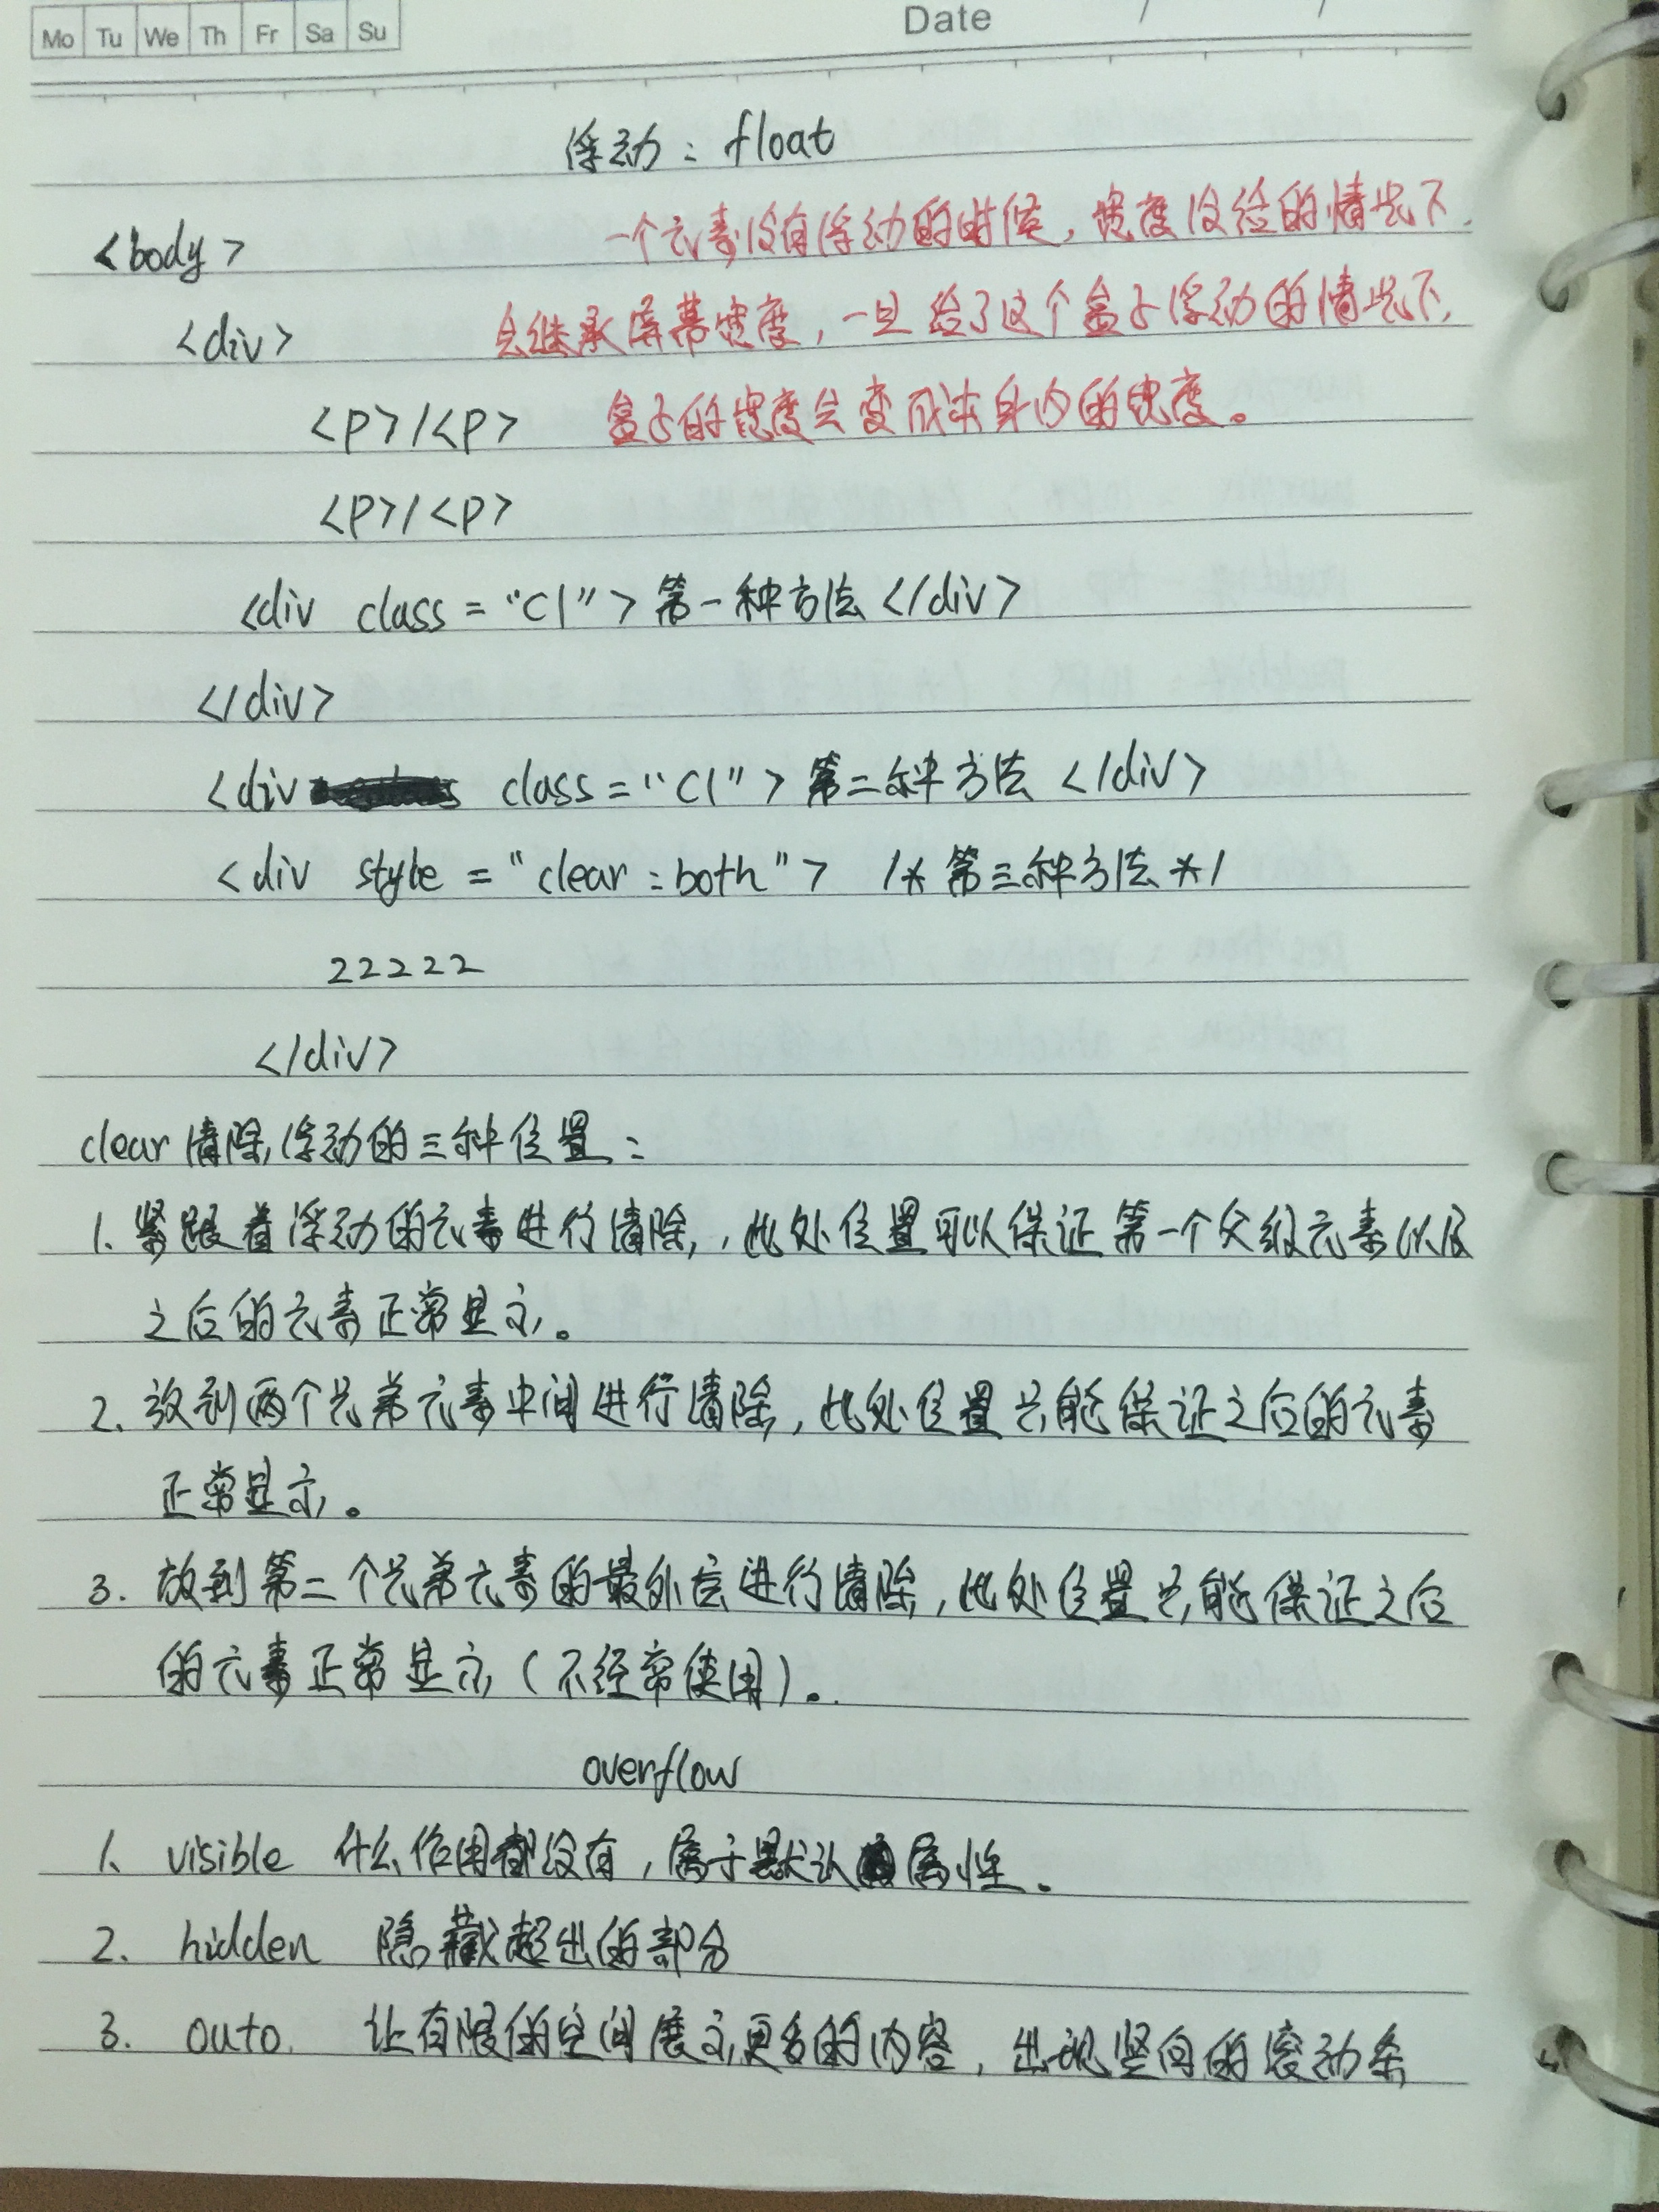 Mo Tu We Th Fr Sa Su
Date / /
浮动：float
<body> 一个元素没有浮动的时候，宽度没给的情况下，
<div> 会继承屏幕宽度，一旦给了这个盒子浮动的情况下，
<p>/<p> 盒子的宽度会变成本身内的宽度。
<p>/<p>
<div class="Cl">第一种方法</div>
</div>
<div class="Cl">第二种方法</div>
<div style="clear:both"> /*第三种方法*/
22222
</div>
clear清除浮动的三种位置：
1. 紧跟着浮动的元素进行清除，此处位置可以保证第一个父级元素以及
之后的元素正常显示。
2. 放到两个兄弟元素中间进行清除，此处位置只能保证之后的元素
正常显示。
3. 放到第二个兄弟元素的最外层进行清除，此处位置只能保证之后
的元素正常显示（不经常使用）。
overflow
1. visible 什么作用都没有，属于默认属性。
2. hidden 隐藏超出的部分
3. auto 让有限的空间展示更多的内容，出现竖向的滚动条